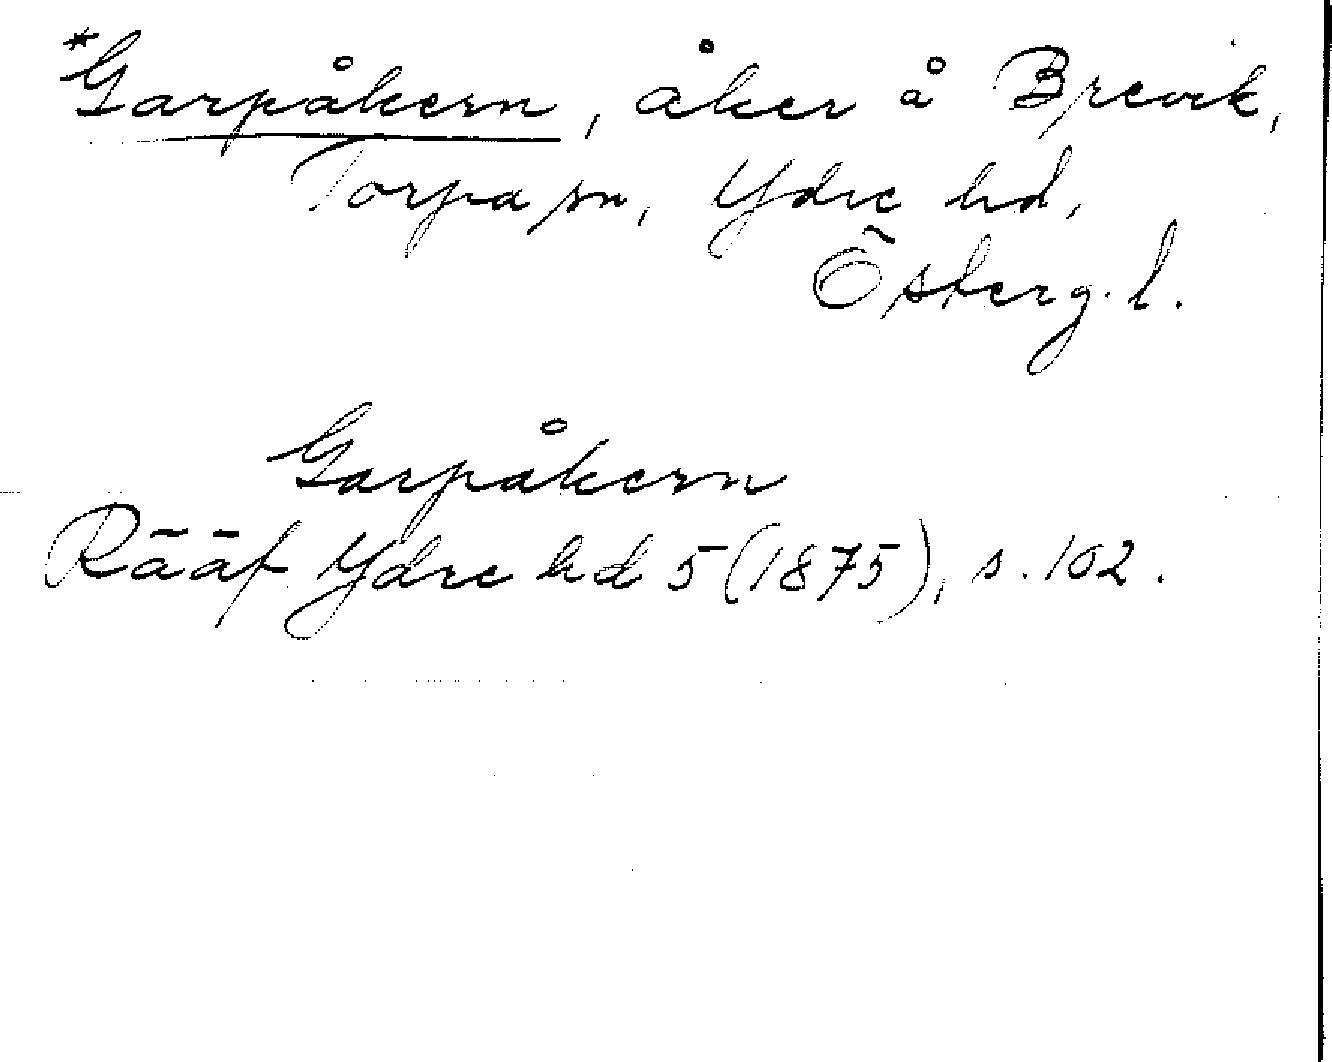 *Garpåkern, åker å Brevik,
Torpa sn, Ydre hd,
Österg. l.
Garpåkern
Rääf Ydre hd 5 (1875), s. 102.